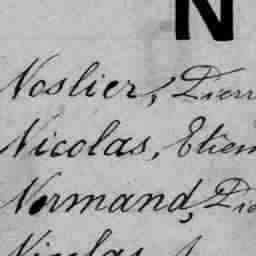 N
Noslier,
Nicolas, Etien
Normand,
Nicolas